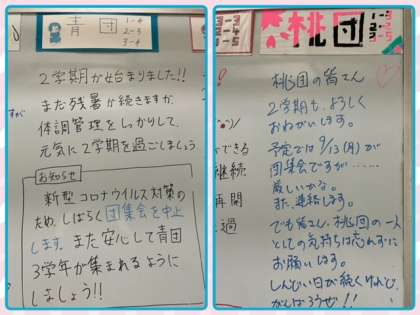 青団
1-4
2-3
3-4
2学期が始まりました!!
まだ残暑が続きますが、
体調管理をしっかりして、
元気に2学期を過ごしましょう
お知らせ
新型コロナウイルス対策の
ため、しばらく団集会を中止
します。また安心して青団
3学年が集まれるように
しましょう!!
すが
桃団
桃団の皆さん
2学期も、よろしく
おねがいします。
予定では9/13(月)が
団集会ですが……
厳しいかな。
また、連絡します。
でも皆さん、桃団の一人
としての気持ちは忘れずに
お願いします。
しんどい日が続くけれど、
がんばろうぜ!!
できる
継続
再開
過